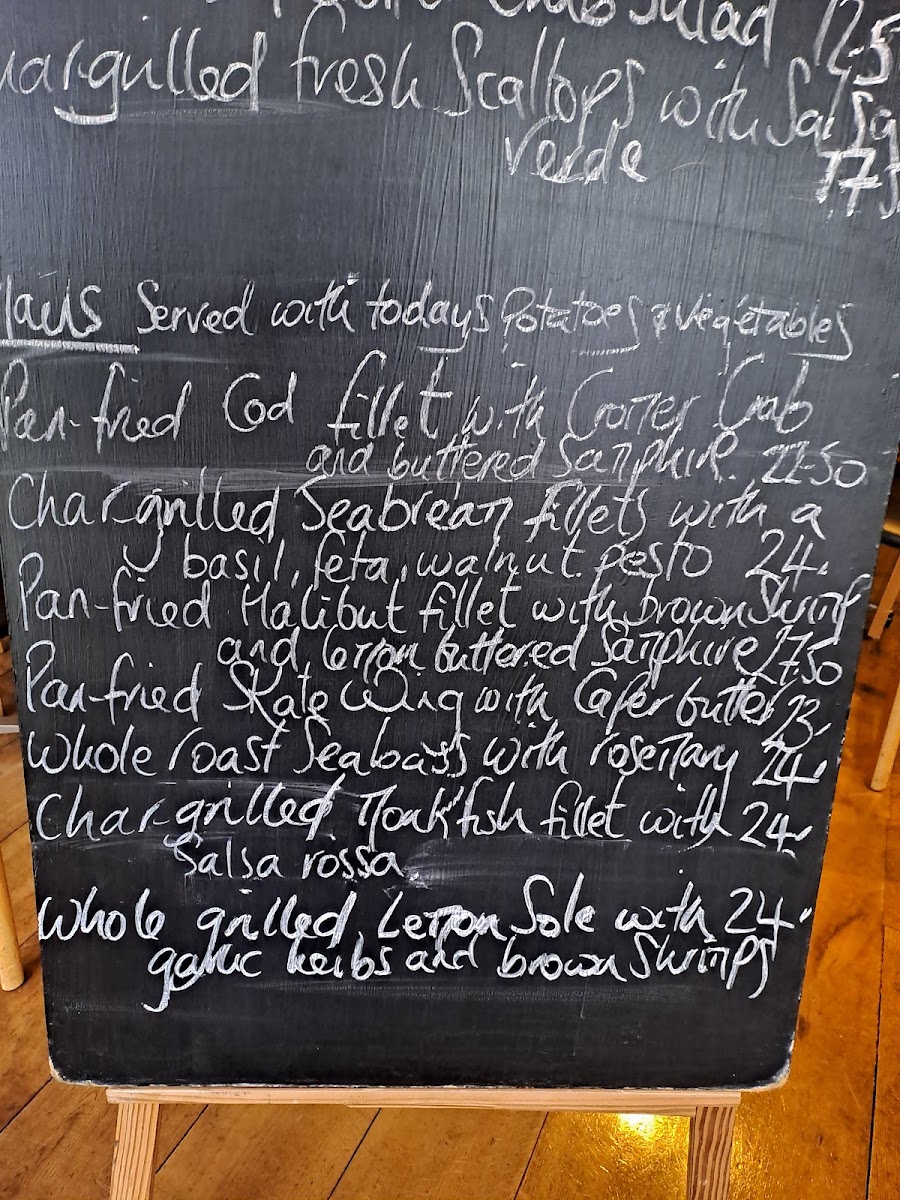 Crab Salad 12.5
hargrilled fresh Scallops with Salsa
Verde 17.5
Mains Served with todays Potatoes & Vegetables
Pan-fried Cod fillet with Cromer Crab
and buttered Samphire 22.50
Chargrilled Seabream fillets with a
basil, feta, walnut pesto 24.
Pan-fried Halibut fillet with brown Shrimp
and lemon buttered Samphire 27.50
Pan-fried Skate Wing with Caper butter 23.
Whole roast Seabass with rosemary 24.
Chargrilled Monkfish fillet with 24.
Salsa rossa
Whole grilled Lemon Sole with 24.
garlic herbs and brown Shrimps